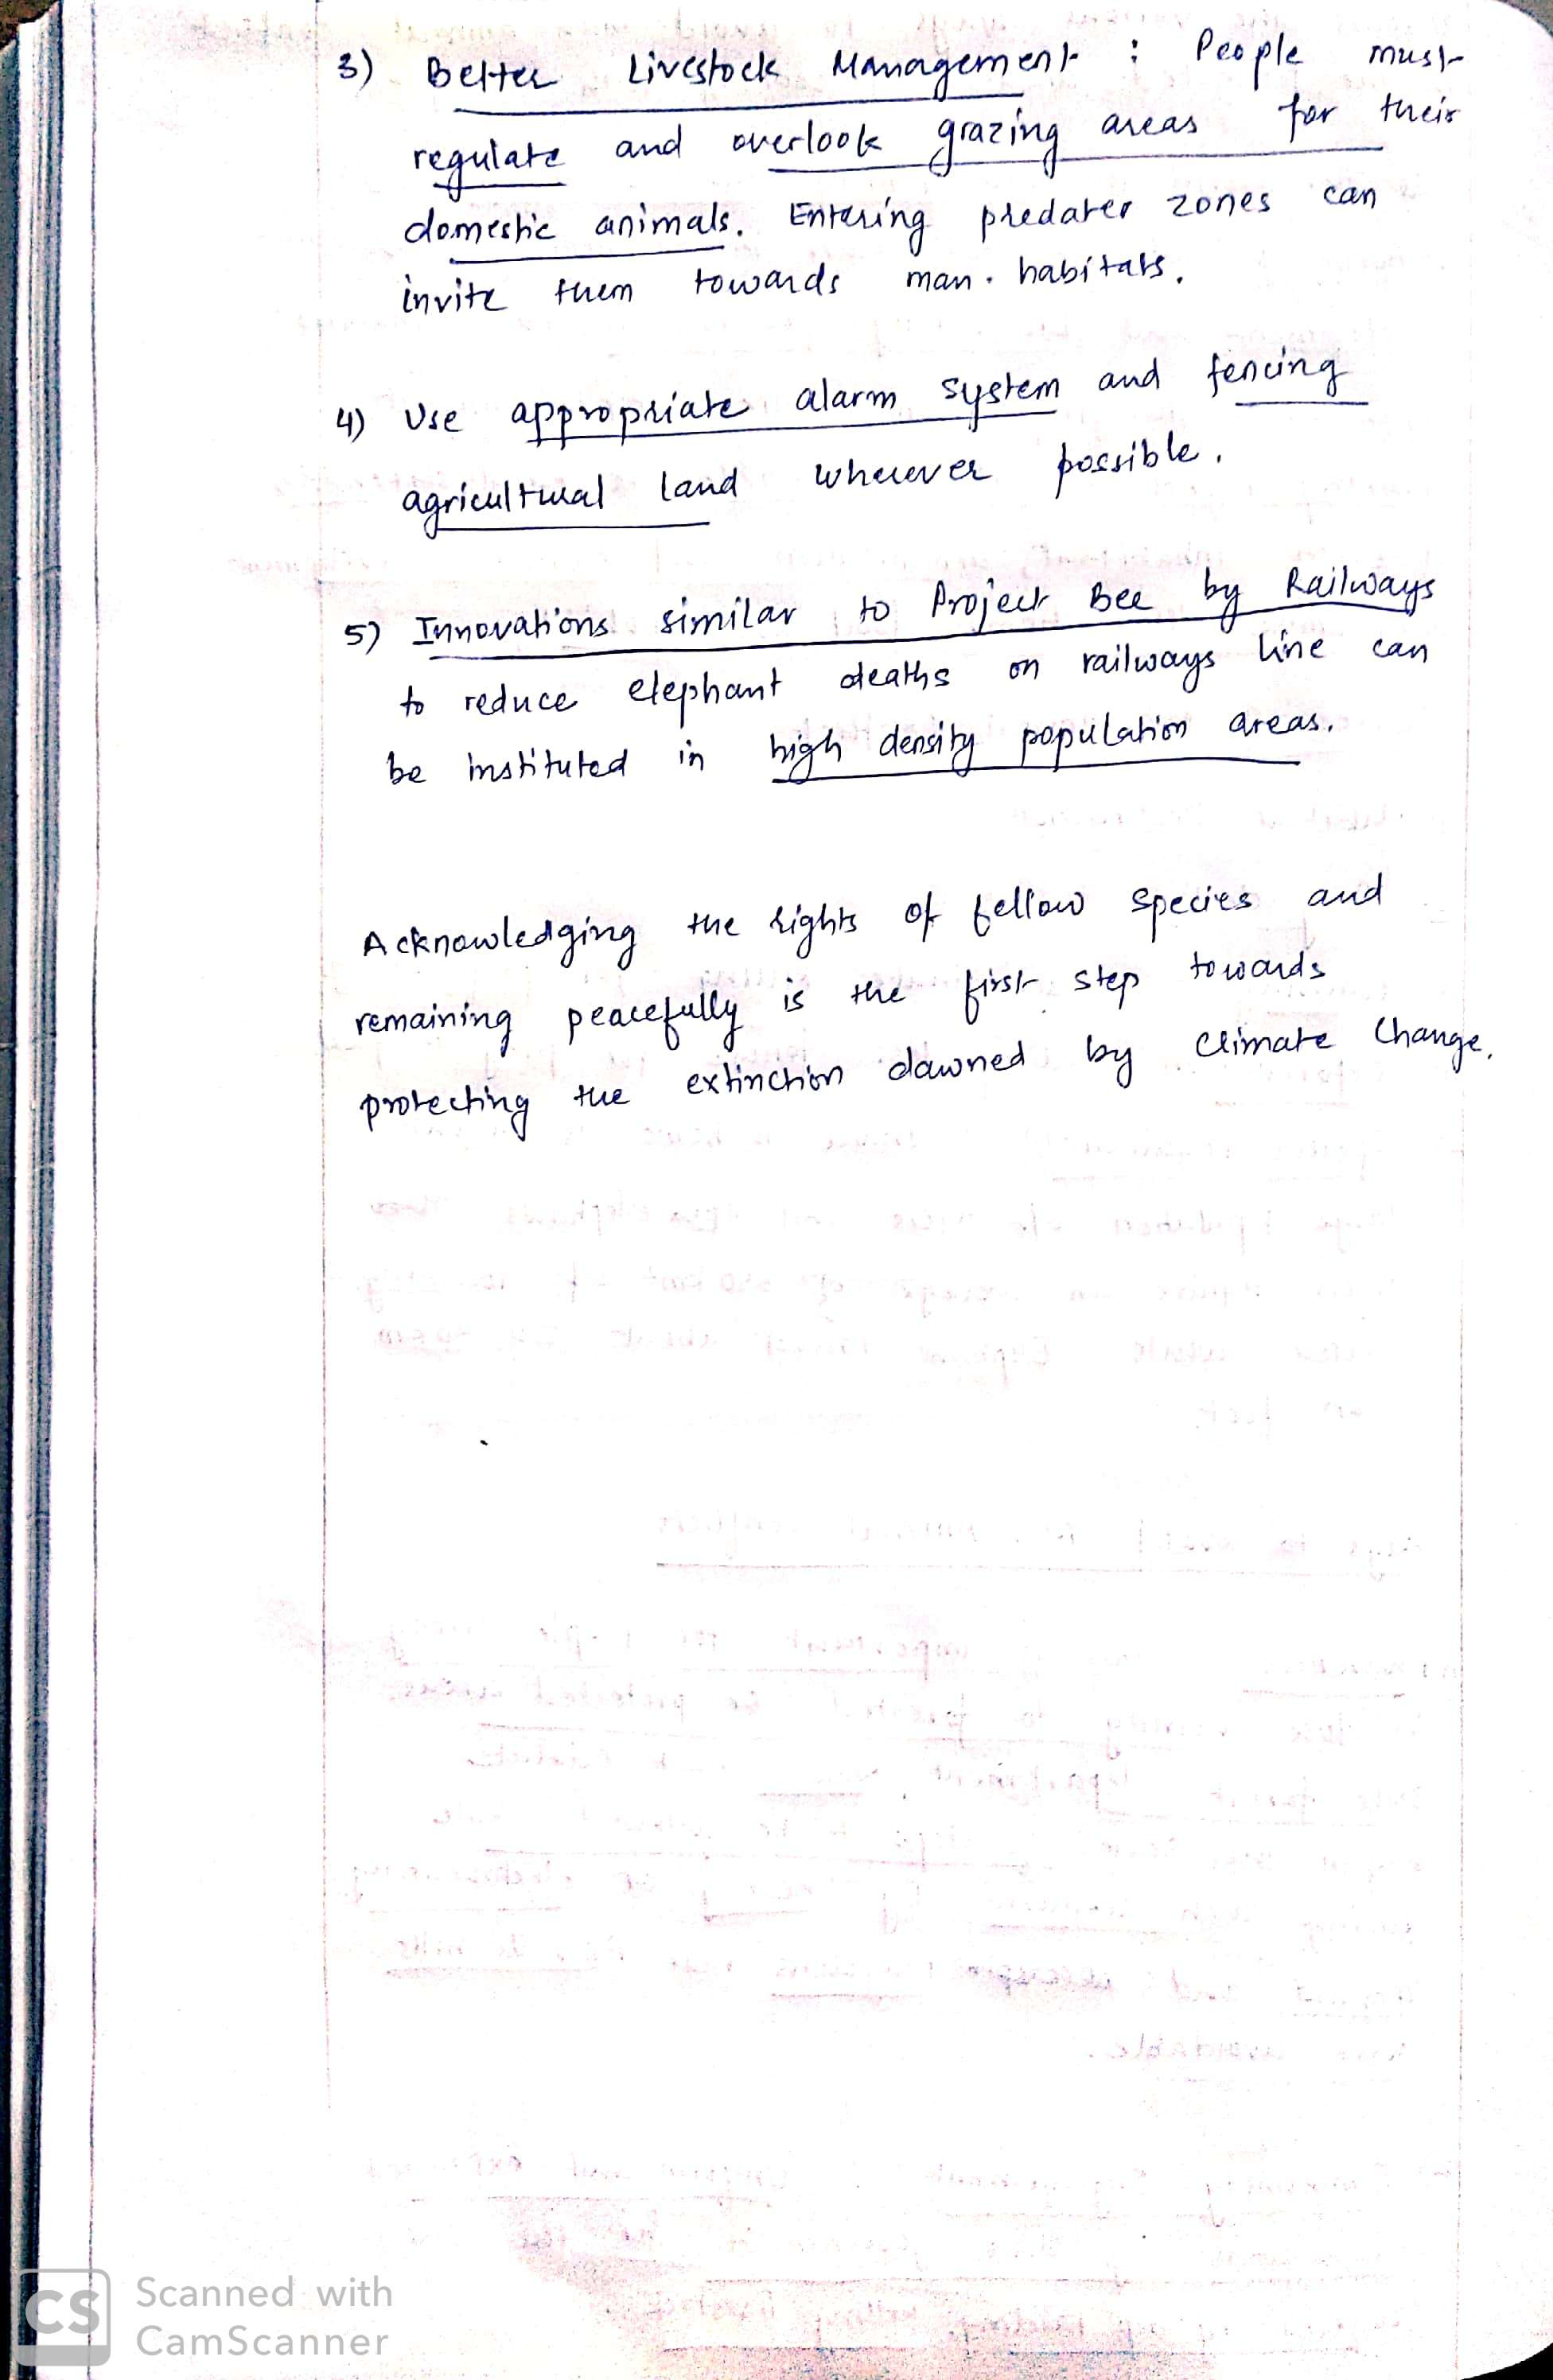 3) Better Livestock Management : People must
regulate and overlook grazing areas for their
domestic animals. Entering predater zones can
invite them towards man. habitats.
4) Use appropriate alarm system and fencing
agricultural land wherever possible.
5) Innovations similar to Project Bee by Railways
to reduce elephant deaths on railways line can
be instituted in high density population areas.
Acknowledging the rights of fellow species and
remaining peacefully is the first step towards
protecting the extinction dawned by Climate Change.
CS Scanned with
CamScanner